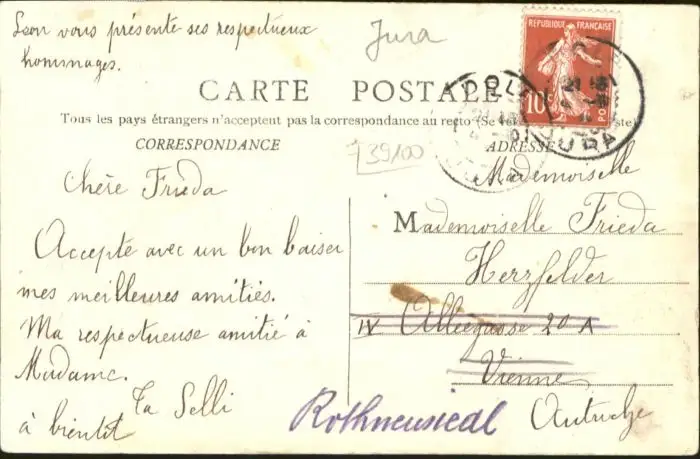 Leon vous présente ses respectueux
hommages.
Jura
RÉPUBLIQUE FRANÇAISE
10c
POSTES
JURA
CARTE POSTALE
Tous les pays étrangers n'acceptent pas la correspondance au recto (Se
CORRESPONDANCE
ADRESSE
739100
Chère Frieda
Accepte avec un bon baiser
mes meilleures amitiés.
Ma respectueuse amitié à
Madame.
Ta Selli
à bientôt
Mademoiselle
Mademoiselle Frieda
Herzfelder
IV Alleegasse 20 A
Vienne
Rothneusiedl
Autriche